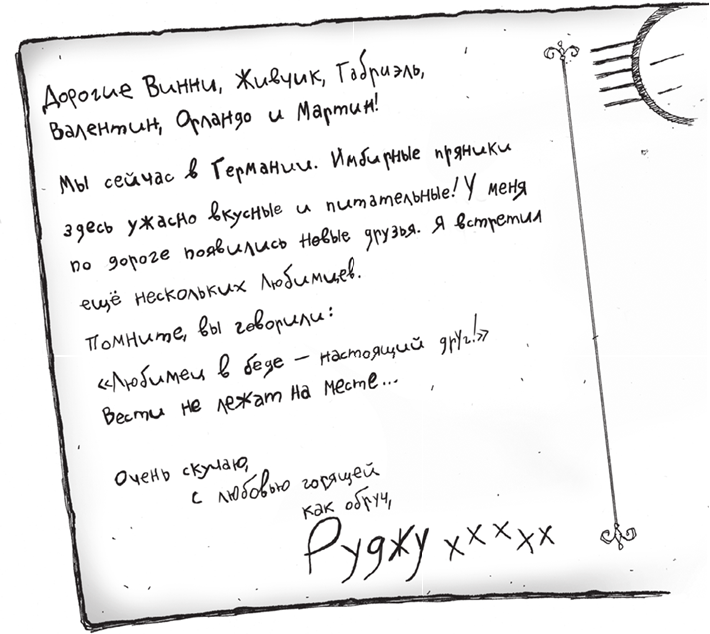 Дорогие Винни, Живчик, Габриэль,
Валентин, Орландо и Мартин!
Мы сейчас в Германии. Имбирные пряники
здесь ужасно вкусные и питательные! У меня
по дороге появились новые друзья. Я встретил
ещё нескольких любимцев.
Помните, вы говорили:
«Любимец в беде – настоящий друг!»
Вести не лежат на месте...
Очень скучаю,
с любовью горящей
как обруч,
Руджу xxxxx